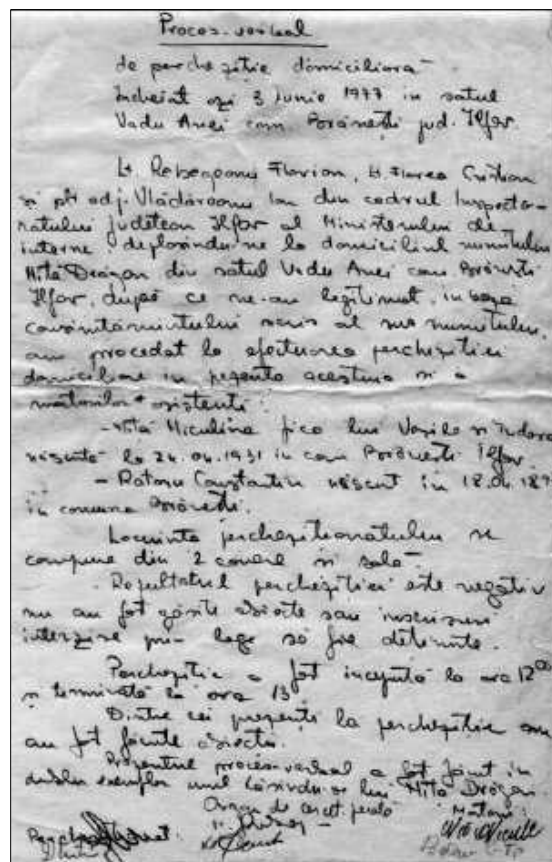 Proces-verbal
de perchezitie domiciliara
Incheiat azi 3 Iunie 1977 in satul
Vadu Anei com. Brănești jud. Ilfov.
Lt. Rebegeanu Florian, Lt. Florea Cristian
si plt adj. Vlădăreanu Ion din cadrul Inspecto-
ratului județean Ilfov al Ministerului de
interne, deplasîndu-ne la domiciliul numitului
Mită Drăgan din satul Vadu Anei com Brănești
Ilfov, după ce ne-am legitimat, in baza
consimtămîntului scris al sus numitului,
am procedat la efectuarea perchezitiei
domiciliare in prezenta acestuia si a
martorilor asistenti:
- Mită Niculina fica lui Vasile si Tudora
născută la 24.04.1931 in com Brănești Ilfov
- Constantin născut in 18.04.189
in comuna Brănești.
Locuinta perchezitionatului se
compune din 2 camere si sală.
Rezultatul perchezitiei este negativ
nu au fost găsite obiecte sau inscrisuri
interzise prin lege să fie detinute.
Perchezitia a fost incepută la ora 12
si terminată la ora 13
Dintre cei prezenti la perchezitie
au fost făcute obiectii.
Prezentul proces-verbal a fost făcut in
dublu exemplar unul lui Mită Drăgan.
Organ de cercet. penală Martori